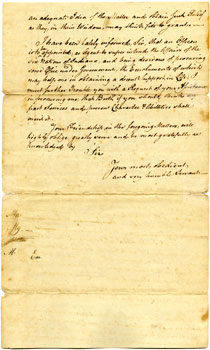 an adequate Idea of the Matter and obtain such Relief
as they, in their Wisdom may think fit to Grant —
I have been lately informed, Sir, that an Officer
to be appointed, as Agent to superintend the Affairs of the
Six Nations of Indians, and being desirous of possessing
some Office under Government, the Emoluments of which
may help me in obtaining a decent Support in Life, I
must further Trouble you with a Request of your Assistance
in procuring me that Birth if you should think my
past Services and present Character & Abilities shall
merit it.
Your Friendship in the foregoing Matters, will
highly oblige and be most gratefully ac
knowledged by
Sir
Your most obedient,
and very humble Servant